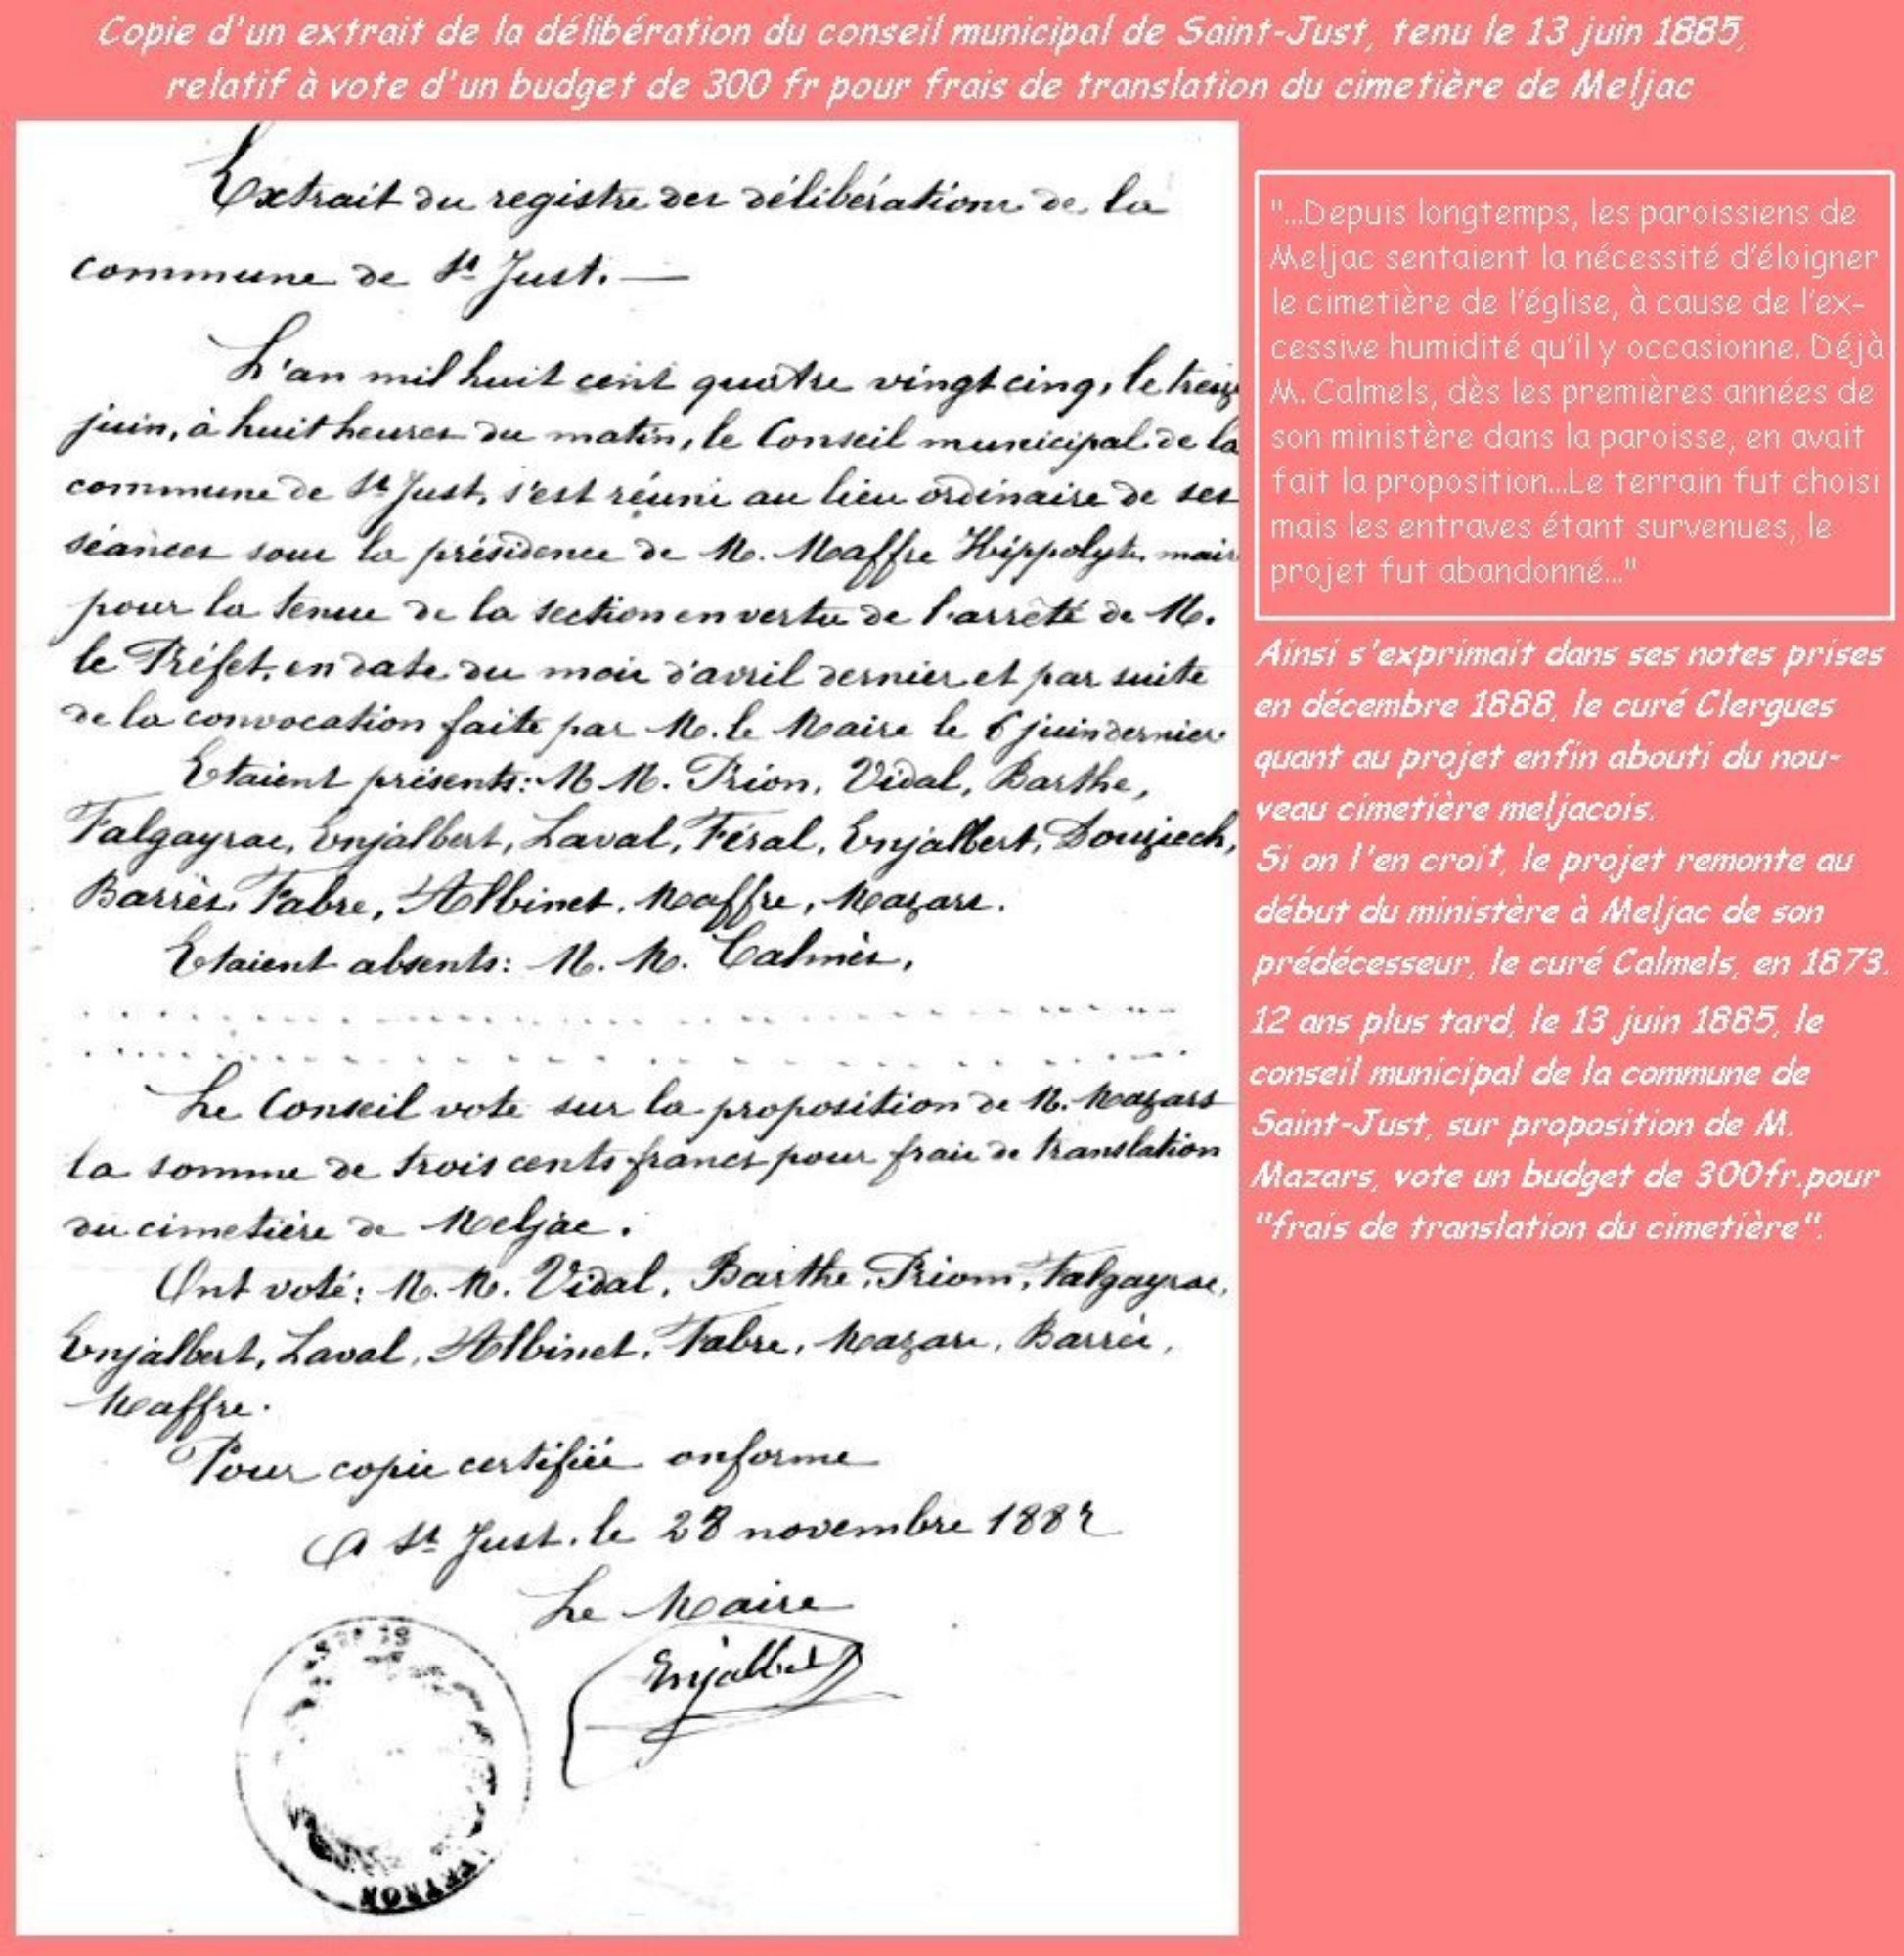 Copie d'un extrait de la délibération du conseil municipal de Saint-Just, tenu le 13 juin 1885,
relatif à vote d'un budget de 300 fr pour frais de translation du cimetière de Meljac
Extrait du registre des délibérations de la
commune de St Just. —
L'an mil huit cent quatre vingt cinq, le treize
juin, à huit heures du matin, le Conseil municipal de la
commune de St Just, s'est réuni au lieu ordinaire de ses
séances sous la présidence de M. Maffre Hippolyte, maire
pour la tenue de la section en vertu de l'arrêté de M.
le Préfet, en date du mois d'avril dernier et par suite
de la convocation faite par M. le Maire le 6 juin dernier
Etaient présents: M M. Prion, Vidal, Barthe,
Falgayrac, Enjalbert, Laval, Féral, Enjalbert, Douziech,
Barrès, Fabre, Albinet, Maffre, Mazars.
Etaient absents: M. M. Calmès,
Le Conseil vote sur la proposition de M. Mazars
la somme de trois cents francs pour frais de translation
du cimetière de Meljac.
Ont voté: M. M. Vidal, Barthe, Priom, Falgayrac,
Enjalbert, Laval, Albinet, Fabre, Mazars, Barrès,
Maffre.
Pour copie certifiée onforme
A St Just, le 28 novembre
Le Maire
Enjalbert
AVEYRON
"...Depuis longtemps, les paroissiens de
Meljac sentaient la nécessité d'éloigner
le cimetière de l'église, à cause de l'ex-
cessive humidité qu'il y occasionne. Déjà
M. Calmels, dès les premières années de
son ministère dans la paroisse, en avait
fait la proposition...Le terrain fut choisi
mais les entraves étant survenues, le
projet fut abandonné..."
Ainsi s'exprimait dans ses notes prises
en décembre 1888, le curé Clergues
quant au projet enfin abouti du nou-
veau cimetière meljacois.
Si on l'en croit, le projet remonte au
début du ministère à Meljac de son
prédécesseur, le curé Calmels, en 1873.
12 ans plus tard, le 13 juin 1885, le
conseil municipal de la commune de
Saint-Just, sur proposition de M.
Mazars, vote un budget de 300fr.pour
"frais de translation du cimetière".